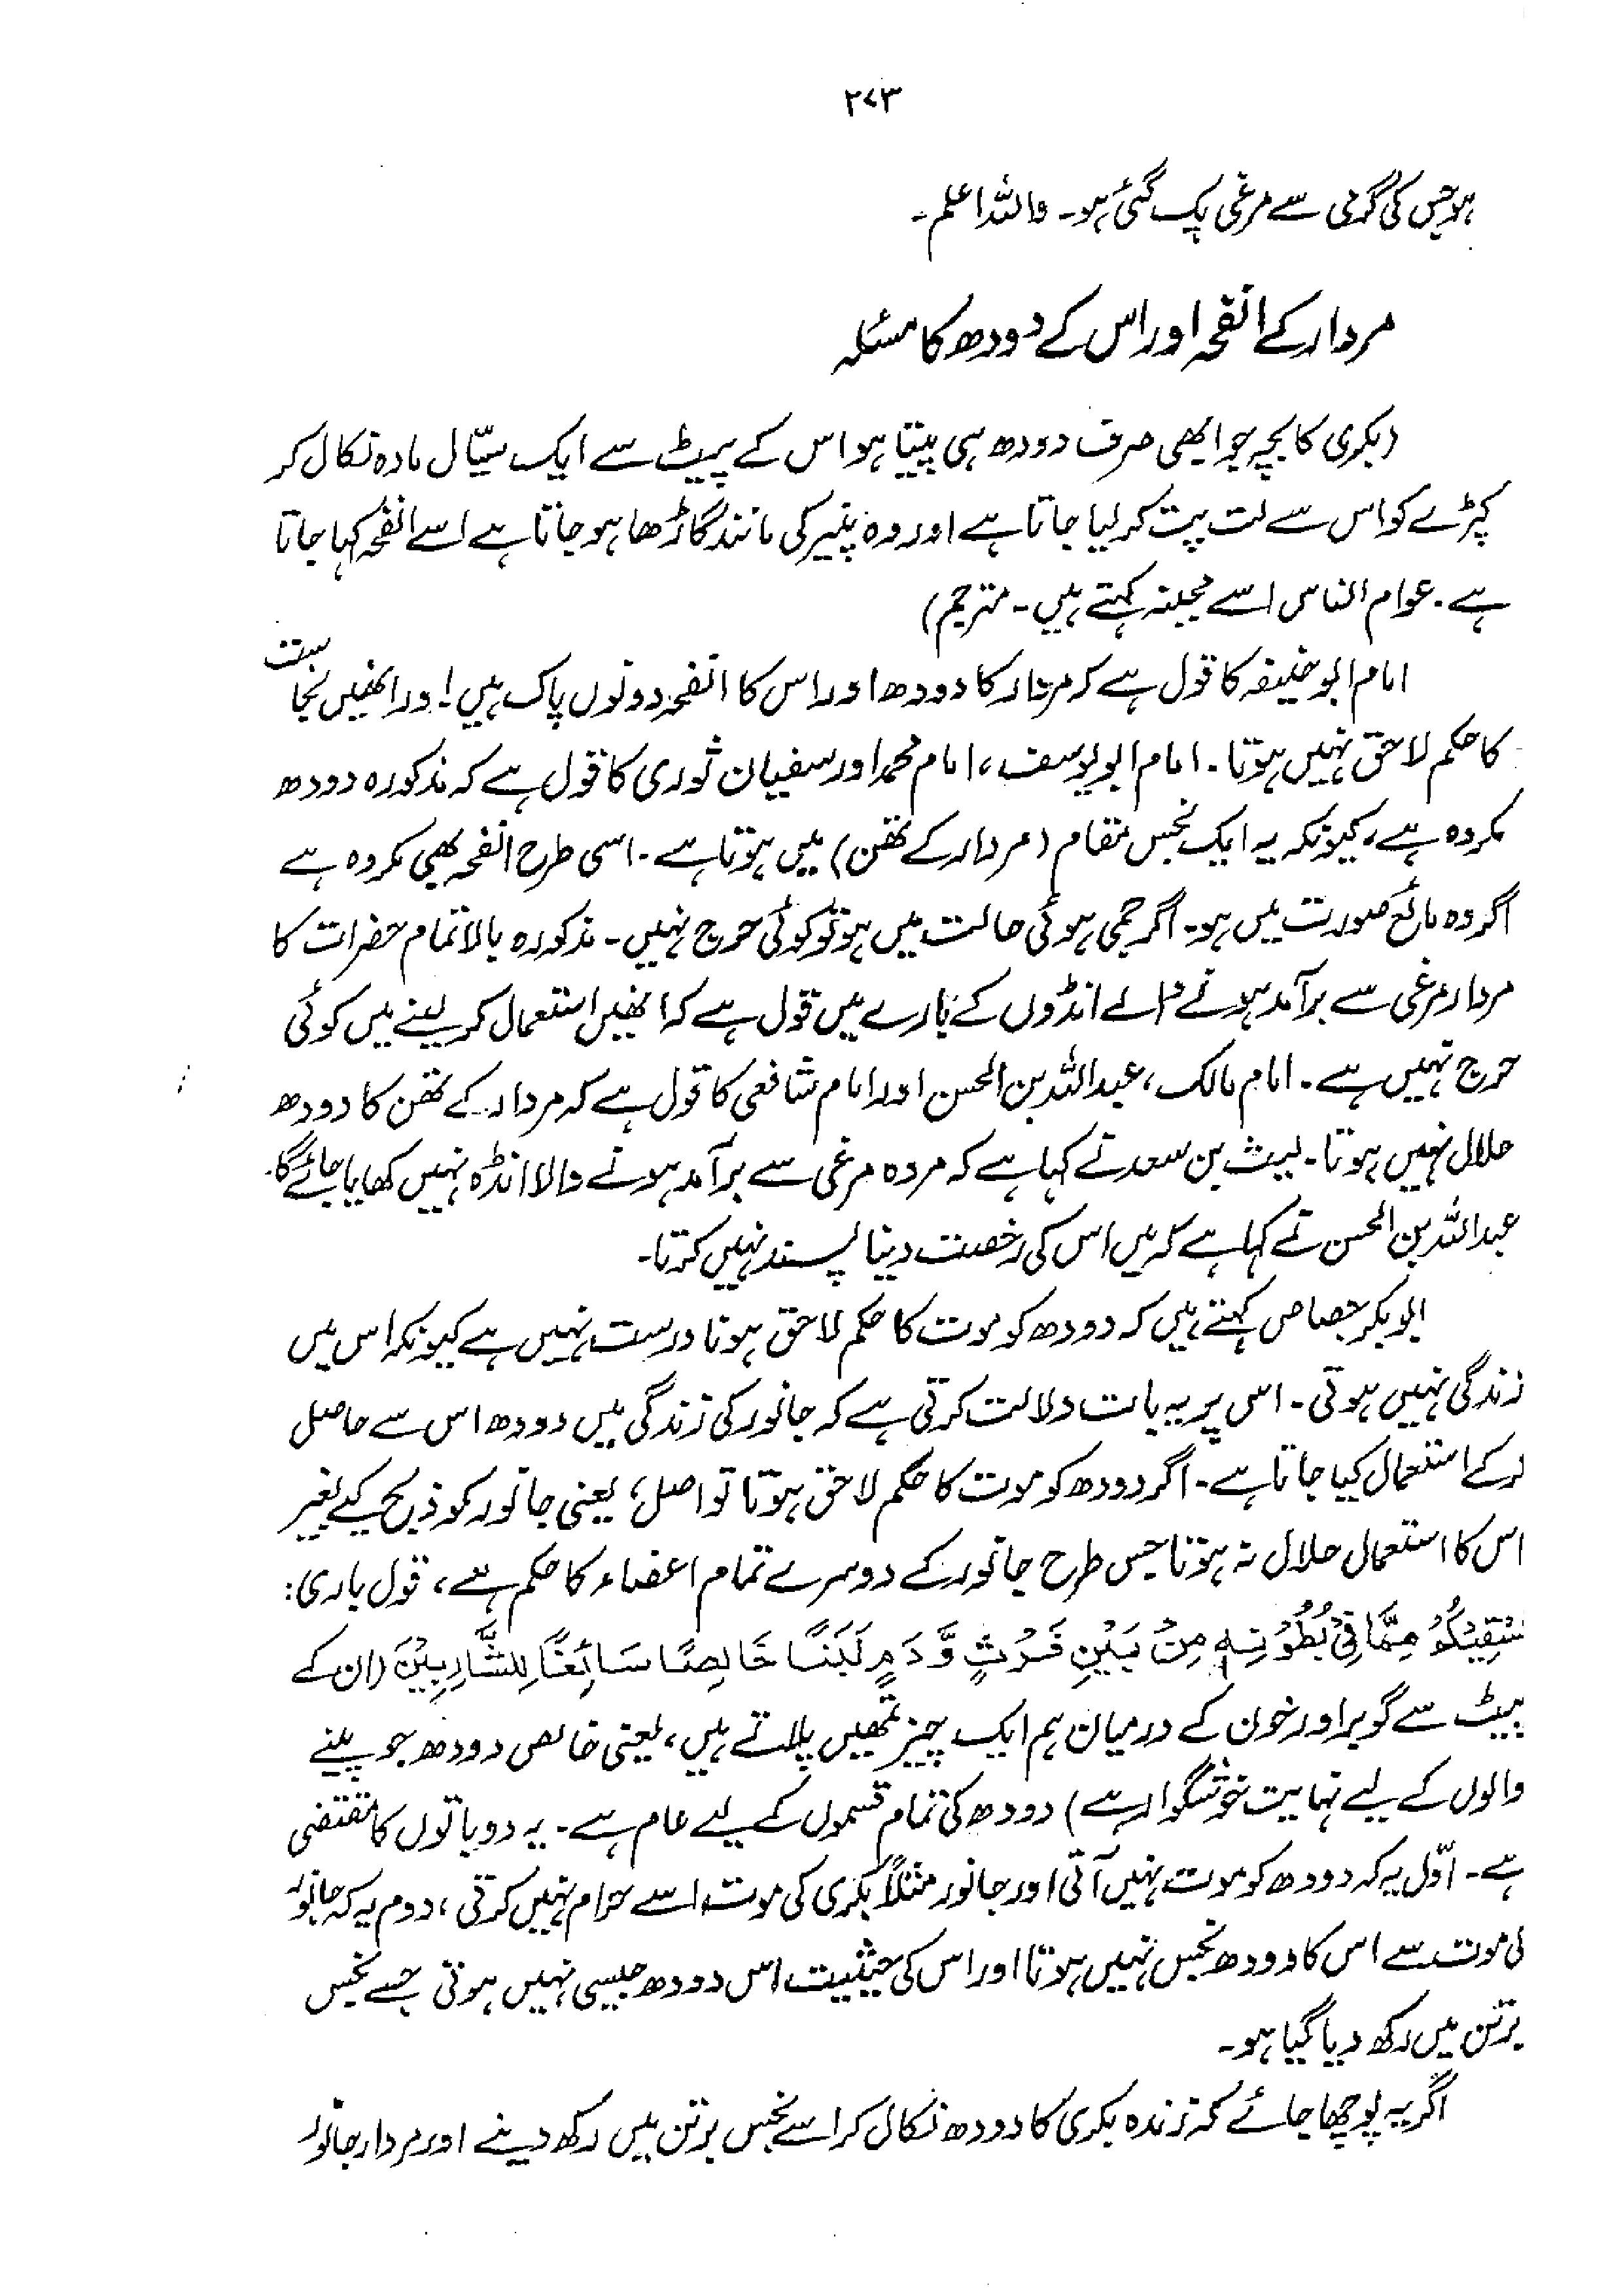 ۲۷۳
ہو جس کی گرمی سے مرغی پک گئی ہو۔ واللہ اعلم۔
مردار کے انفحہ اور اس کے دودھ کا مسئلہ
(بکری کا بچہ جو ابھی صرف دودھ ہی پیتا ہو اس کے پیٹ سے ایک سیّال مادہ نکال کر
کپڑے کو اس سے لت پت کر لیا جاتا ہے اور وہ پنیر کی مانند گاڑھا ہو جاتا ہے اسے انفحہ کہا جاتا
ہے۔ عوام الناس اسے مجبنہ کہتے ہیں۔ مترجم)
امام ابو حنیفہ کا قول ہے کہ مردار کا دودھ اور اس کا انفحہ دونوں پاک ہیں اور انھیں نجاست
کا حکم لاحق نہیں ہوتا۔ امام ابو یوسف، امام محمد اور سفیان ثوری کا قول ہے کہ مذکورہ دودھ
مکروہ ہے، کیونکہ یہ ایک نجس مقام (مردار کے تھن) میں ہوتا ہے۔ اسی طرح انفحہ بھی مکروہ ہے
اگر وہ مائع صورت میں ہو۔ اگر جمی ہوئی حالت میں ہو تو کوئی حرج نہیں۔ مذکورہ بالا تمام حضرات کا
مردار مرغی سے برآمد ہونے والے انڈوں کے بارے میں قول ہے کہ انھیں استعمال کر لینے میں کوئی
حرج نہیں ہے۔ امام مالک، عبداللہ بن الحسن اور امام شافعی کا قول ہے کہ مردار کے تھن کا دودھ
حلال نہیں ہوتا۔ لیث بن سعد نے کہا ہے کہ مردہ مرغی سے برآمد ہونے والا انڈہ نہیں کھایا جائے گا۔
عبداللہ بن الحسن نے کہا ہے کہ میں اس کی رخصت دینا پسند نہیں کرتا۔
ابو بکر جصاص کہتے ہیں کہ دودھ کو موت کا حکم لاحق ہونا درست نہیں ہے کیونکہ اس میں
زندگی نہیں ہوتی۔ اس پر یہ بات دلالت کرتی ہے کہ جانور کی زندگی میں دودھ اس سے حاصل
کرکے استعمال کیا جاتا ہے۔ اگر دودھ کو موت کا حکم لاحق ہوتا تو اصل، یعنی جانور کو ذبح کیے بغیر
اس کا استعمال حلال نہ ہوتا جس طرح جانور کے دوسرے تمام اعضاء کا حکم ہے، قول باری:
نُسْقِیْکُمْ مِمَّا فِیْ بُطُوْنِہٖ مِنْ بَیْنِ فَرْثٍ وَّ دَمٍ لَبَنًا خَالِصًا سَائِغًا لِلشَّارِبِیْنَ (ان کے
پیٹ سے گوبر اور خون کے درمیان ہم ایک چیز تمھیں پلاتے ہیں، یعنی خالص دودھ جو پینے
والوں کے لیے نہایت خوشگوار ہے) دودھ کی تمام قسموں کے لیے عام ہے۔ یہ دو باتوں کا مقتضی
ہے۔ اوّل یہ کہ دودھ کو موت نہیں آتی اور جانور مثلاً بکری کی موت اسے حرام نہیں کرتی، دوم یہ کہ جانور
کی موت سے اس کا دودھ نجس نہیں ہوتا اور اس کی حیثیت اس دودھ جیسی نہیں ہوتی جسے نجس
برتن میں رکھ دیا گیا ہو۔
اگر یہ پوچھا جائے کہ زندہ بکری کا دودھ نکال کر اسے نجس برتن میں رکھ دینے اور مردار جانور